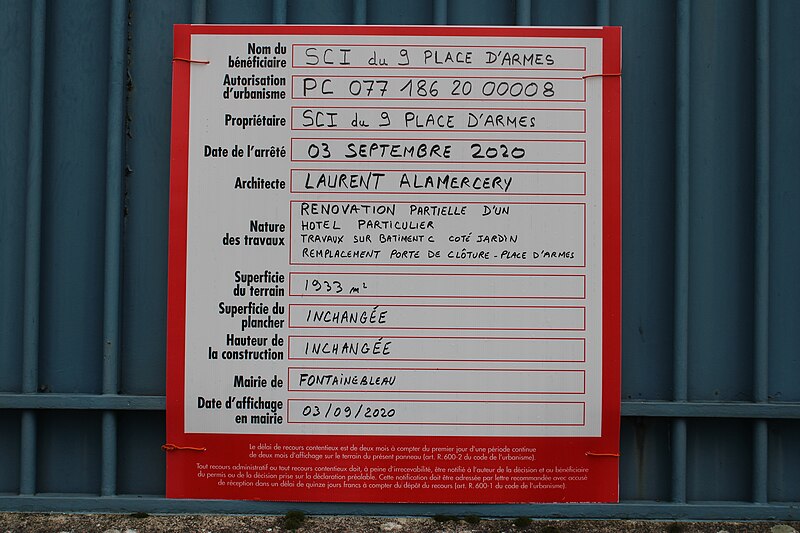 Nom du bénéficiaire SCI du 9 PLACE D'ARMES
Autorisation d'urbanisme PC 077 186 20 00008
Propriétaire SCI du 9 PLACE D'ARMES
Date de l'arrêté 03 SEPTEMBRE 2020
Architecte LAURENT ALAMERCERY
Nature des travaux
RENOVATION PARTIELLE D'UN
HOTEL PARTICULIER
TRAVAUX SUR BATIMENT C COTÉ JARDIN
REMPLACEMENT PORTE DE CLÔTURE - PLACE D'ARMES
Superficie du terrain 1933 m²
Superficie du plancher INCHANGÉE
Hauteur de la construction INCHANGÉE
Mairie de FONTAINEBLEAU
Date d'affichage en mairie 03/09/2020
Le délai de recours contentieux est de deux mois à compter du premier jour d'une période continue
de deux mois d'affichage sur le terrain du présent panneau (art. R.600-2 du code de l'urbanisme).
Tout recours administratif ou tout recours contentieux doit, à peine d'irrecevabilité, être notifié à l'auteur de la décision et au bénéficiaire
du permis ou de la décision prise sur la déclaration préalable. Cette notification doit être adressée par lettre recommandée avec accusé
de réception dans un délai de quinze jours francs à compter du dépôt du recours (art. R.600-1 du code de l'urbanisme).